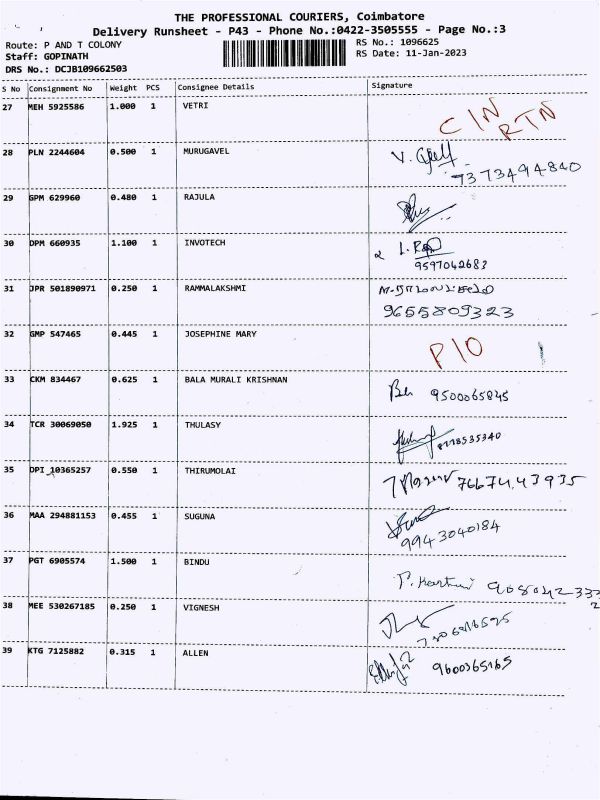 THE PROFESSIONAL COURIERS, Coimbatore
Delivery Runsheet - P43 - Phone No.:0422-3505555 - Page No.:3
Route: P AND T COLONY
RS No.: 1096625
Staff: GOPINATH
RS Date: 11-Jan-2023
DRS No.: DCJB109662503
S No Consignment No Weight PCS Consignee Details Signature
27 MEH 5925586 1.000 1 VETRI
C/N RTN
28 PLN 2244604 0.500 1 MURUGAVEL
7373494840
29 GPM 629960 0.480 1 RAJULA
30 DPM 660935 1.100 1 INVOTECH
9597042683
31 JPR 501890971 0.250 1 RAMMALAKSHMI
9655809323
32 GMP 547465 0.445 1 JOSEPHINE MARY
P/O
33 CKM 834467 0.625 1 BALA MURALI KRISHNAN
9500065845
34 TCR 30069050 1.925 1 THULASY
8778535340
35 DPI 10365257 0.550 1 THIRUMOLAI
7667443935
36 MAA 294881153 0.455 1 SUGUNA
9943040184
37 PGT 6905574 1.500 1 BINDU
38 MEE 530267185 0.250 1 VIGNESH
39 KTG 7125882 0.315 1 ALLEN
9600365165